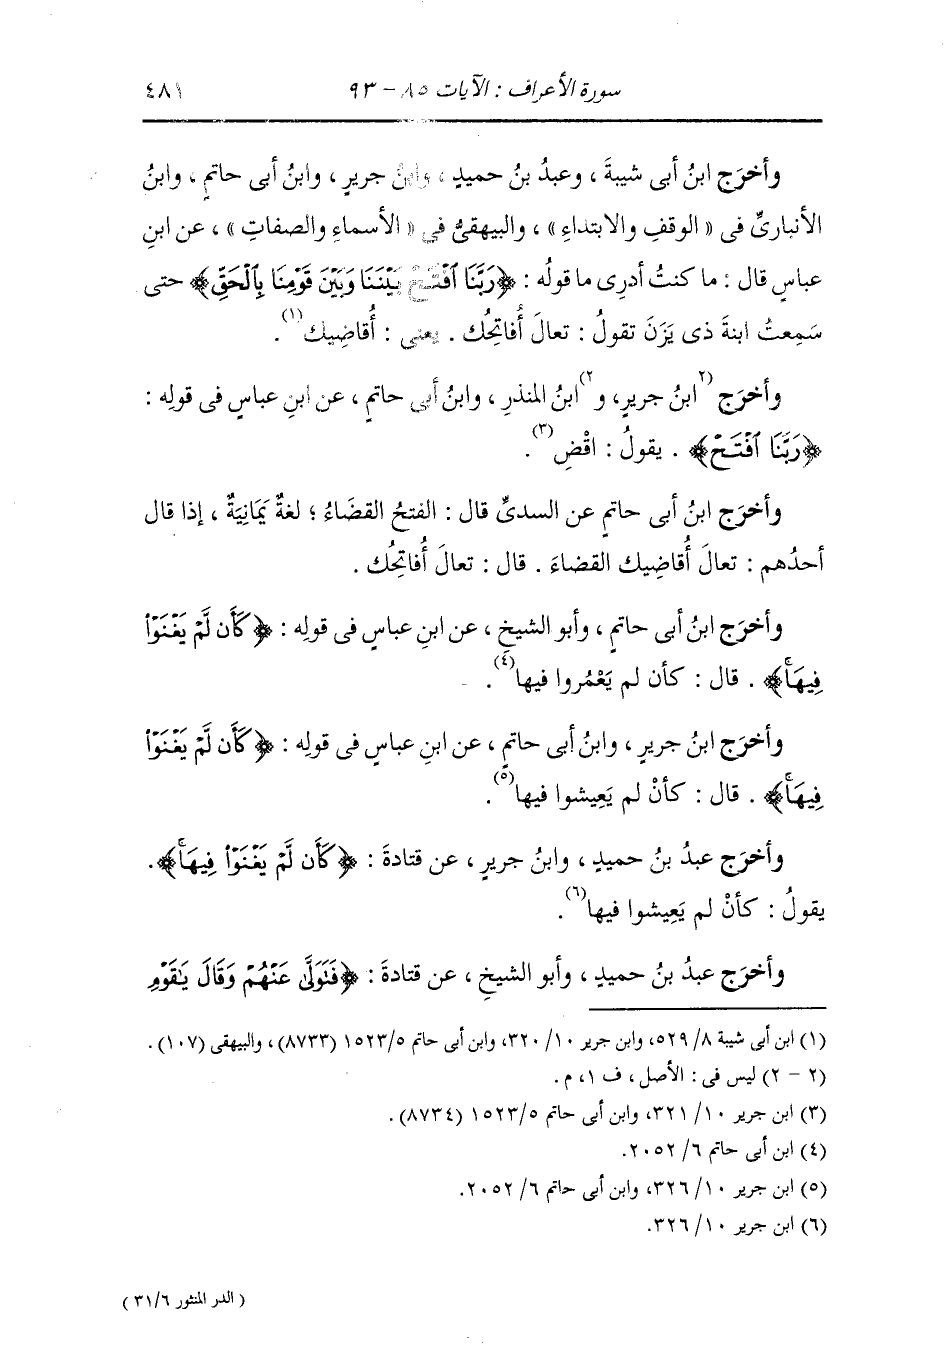 سورة الأعراف : الآيات ٨٥ - ٩٣
٤٨١
وأخرَج ابنُ أبى شيبةَ ، وعبدُ بنُ حميدٍ ، وابنُ جريرٍ ، وابنُ أبى حاتمٍ ، وابنُ
الأنبارىِّ فى « الوقفِ والابتداءِ » ، والبيهقىُّ فى « الأسماءِ والصفاتِ » ، عن ابنِ
عباسٍ قال : ما كنتُ أدرِى ما قولُه : ﴿رَبَّنَا ٱفْتَحْ بَيْنَنَا وَبَيْنَ قَوْمِنَا بِٱلْحَقِّ﴾ حتى
سَمِعتُ ابنةَ ذى يَزَنَ تقولُ : تعالَ أُفاتِحُك . يعنى : أُقاضِيك(١) .
وأخرَج (٢ابنُ جريرٍ، و٢) ابنُ المنذرِ ، وابنُ أبى حاتمٍ ، عن ابنِ عباسٍ فى قولِه :
﴿رَبَّنَا ٱفْتَحْ﴾ . يقولُ : اقْضِ(٣) .
وأخرَج ابنُ أبى حاتمٍ عن السدىِّ قال : الفتحُ القضَاءُ ؛ لغةٌ يَمَانِيَةٌ ، إذا قال
أحدُهم : تعالَ أُقاضِيك القضاءَ . قال : تعالَ أُفاتِحُك .
وأخرَج ابنُ أبى حاتمٍ ، وأبو الشيخِ ، عن ابنِ عباسٍ فى قولِه : ﴿كَأَن لَّمْ يَغْنَوْا۟
فِيهَاۚ﴾ . قال : كأن لم يَعْمُروا فيها(٤) .
وأخرَج ابنُ جريرٍ ، وابنُ أبى حاتمٍ ، عن ابنِ عباسٍ فى قولِه : ﴿كَأَن لَّمْ يَغْنَوْا۟
فِيهَاۚ﴾ . قال : كأنْ لم يَعِيشوا فيها(٥) .
وأخرَج عبدُ بنُ حميدٍ ، وابنُ جريرٍ ، عن قتادةَ : ﴿كَأَن لَّمْ يَغْنَوْا۟ فِيهَاۚ﴾ .
يقولُ : كأنْ لم يَعِيشوا فيها(٦) .
وأخرَج عبدُ بنُ حميدٍ ، وأبو الشيخِ ، عن قتادةَ : ﴿فَتَوَلَّىٰ عَنْهُمْ وَقَالَ يَٰقَوْمِ
(١) ابن أبى شيبة ٨/ ٥٢٩، وابن جرير ١٠/ ٣٢٠، وابن أبى حاتم ٥/ ١٥٢٣ (٨٧٣٣) ، والبيهقى (١٠٧) .
(٢ - ٢) ليس فى : الأصل ، ف ١، م .
(٣) ابن جرير ١٠/ ٣٢١، وابن أبى حاتم ٥/ ١٥٢٣ (٨٧٣٤) .
(٤) ابن أبى حاتم ٦/ ٢٠٥٢.
(٥) ابن جرير ١٠/ ٣٢٦، وابن أبى حاتم ٦/ ٢٠٥٢.
(٦) ابن جرير ١٠/ ٣٢٦.
( الدر المنثور ٣١/٦ )